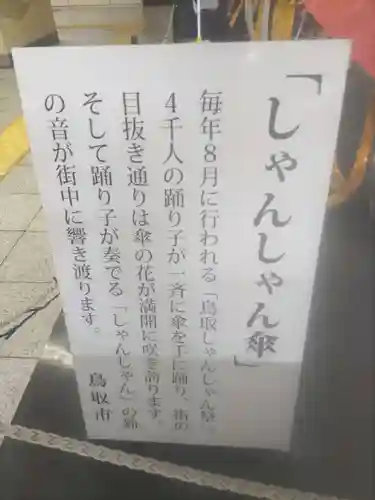 「しゃんしゃん傘」
毎年8月に行われる「鳥取しゃんしゃん祭」
4千人の踊り子が一斉に傘を手に踊り、街の
目抜き通りは傘の花が満開に咲き誇ります。
そして踊り子が奏でる「しゃんしゃん」の鈴
の音が街中に響き渡ります。
鳥取市